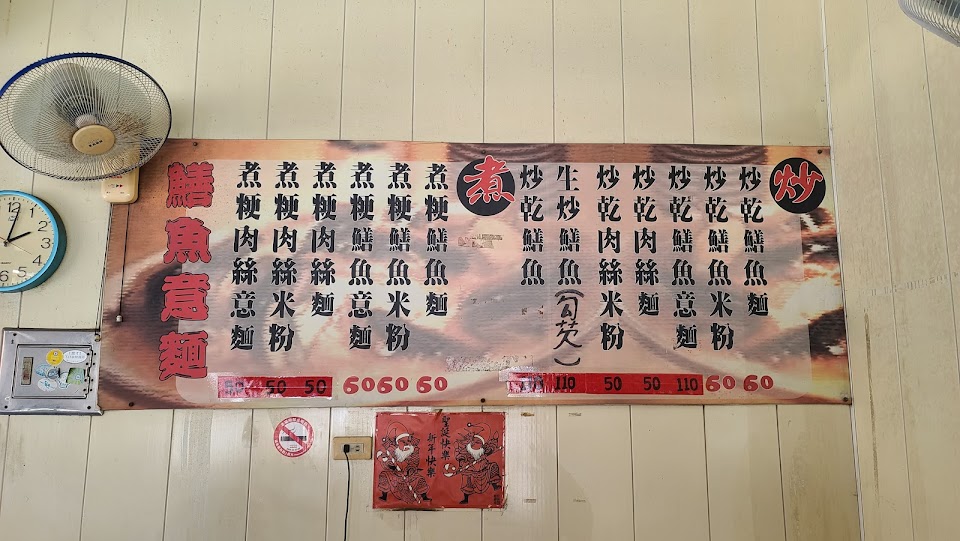 炒
炒乾鱔魚麵
60
炒乾鱔魚米粉
60
炒乾鱔魚意麵
110
炒乾肉絲麵
50
炒乾肉絲米粉
50
生炒鱔魚(勾芡)
110
炒乾鱔魚
煮
煮粳鱔魚麵
60
煮粳鱔魚米粉
60
煮粳鱔魚意麵
60
煮粳肉絲麵
50
煮粳肉絲米粉
50
煮粳肉絲意麵
鱔魚意麵
聖誕快樂
新年快樂